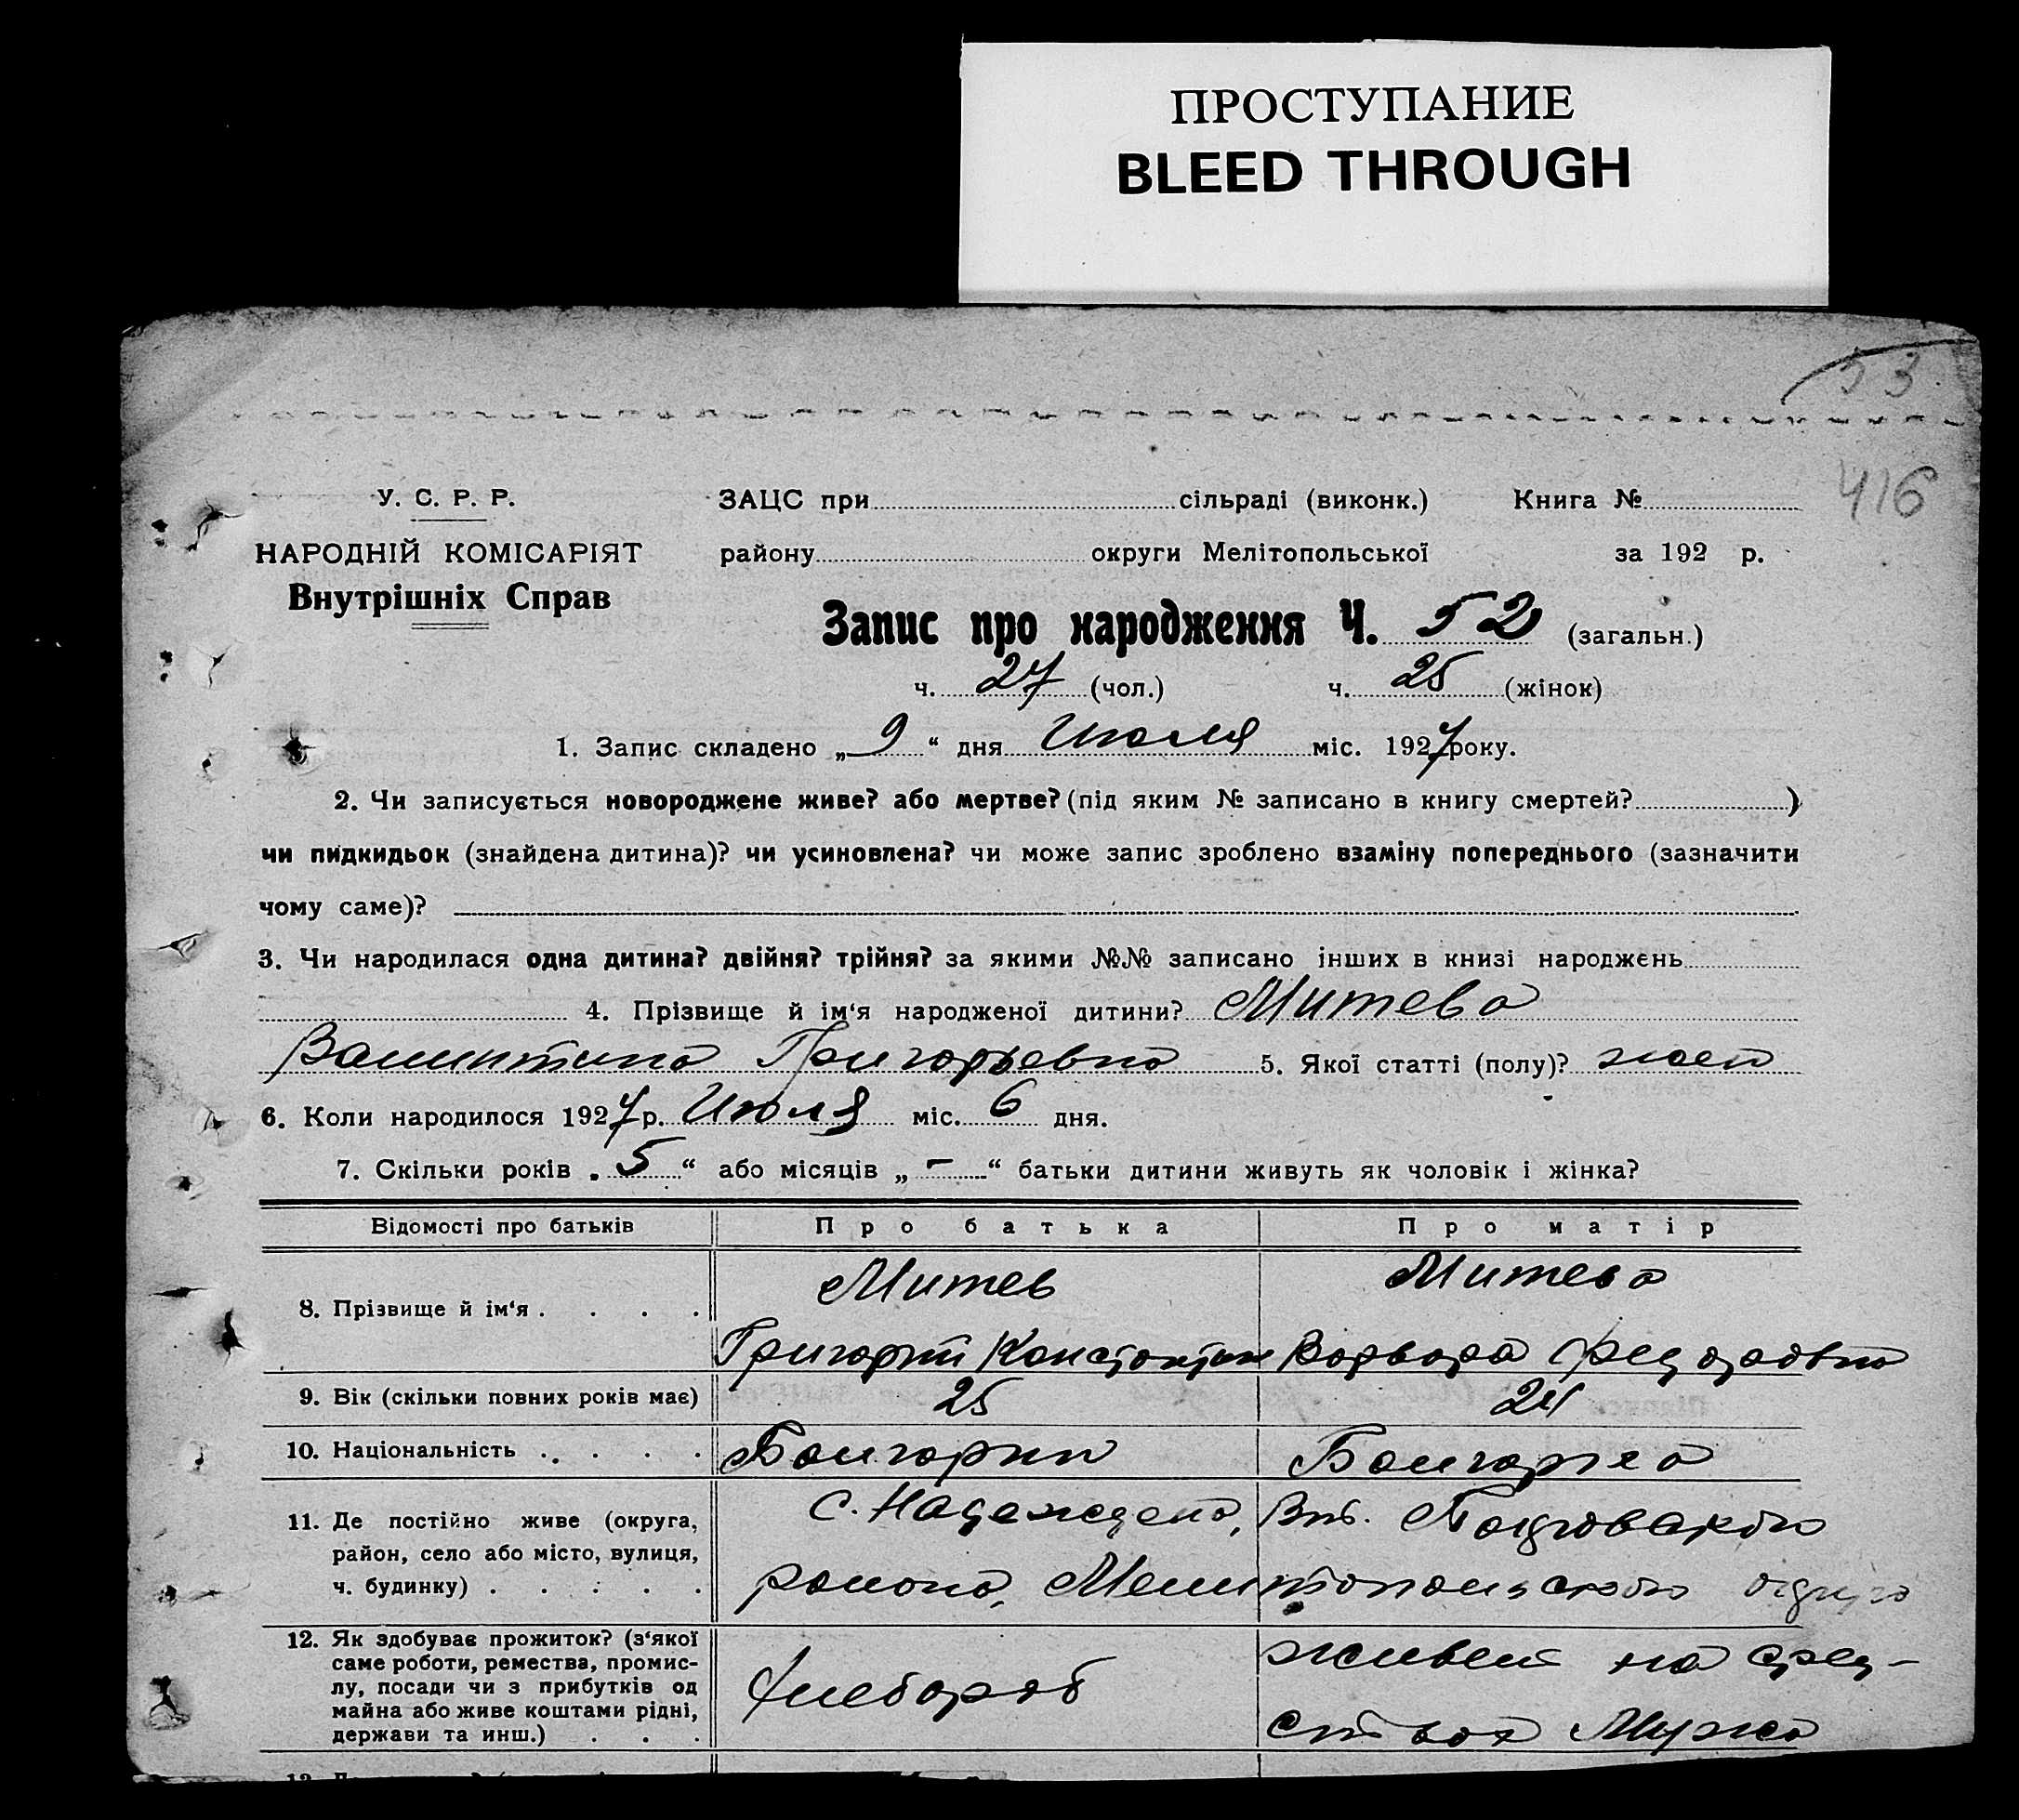 ПРОСТУПАНИЕ
BLEED THROUGH
53
416
У. С. Р. Р.
НАРОДНІЙ КОМІСАРІЯТ
Внутрішніх Справ
ЗАЦС при сільраді (виконк.) Книга №
району округи Мелітопольської за 192 р.
Запис про народження Ч. 52 (загальн.)
ч. 27 (чол.) ч. 25 (жінок)
1. Запис складено „9“ дня Июля міс. 1927 року.
2. Чи записується новороджене живе? або мертве? (під яким № записано в книгу смертей? )
чи пидкидьок (знайдена дитина)? чи усиновлена? чи може запис зроблено взаміну попереднього (зазначити
чому саме)?
3. Чи народилася одна дитина? двійня? трійня? за якими №№ записано інших в книзі народжень
4. Прізвище й ім‘я народженої дитини? Митева
Валинтина Григорьевна 5. Якої статті (полу)? жен
6. Коли народилося 1927 р. Июля міс. 6 дня.
7. Скільки років „5“ або місяців „-“ батьки дитини живуть як чоловік і жінка?
Відомості про батьків Про батька Про матір
8. Прізвище й ім‘я . . . . Митев Митева
Григорий Константин Варвара Федоровна
9. Вік (скільки повних років має) 25 24
10. Національність . . . . Болгарин Болгарка
11. Де постійно живе (округа, район, село або місто, вулиця, ч. будинку) . . . . . с. Надеждено,
района, Мелитопольского округа
12. Як здобуває прожиток? (з‘якої
саме роботи, ремества, промис-
лу, посади чи з прибутків од
майна або живе коштами рідні,
держави та инш.) . . .
Хлебороб
живет на сред-
ствах Мужа